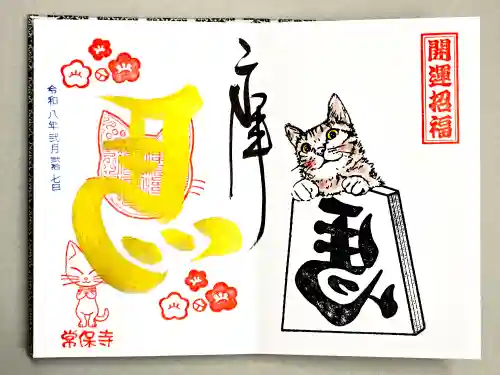 開運招福
馬
令和八年弐月弐拾七日
常保寺